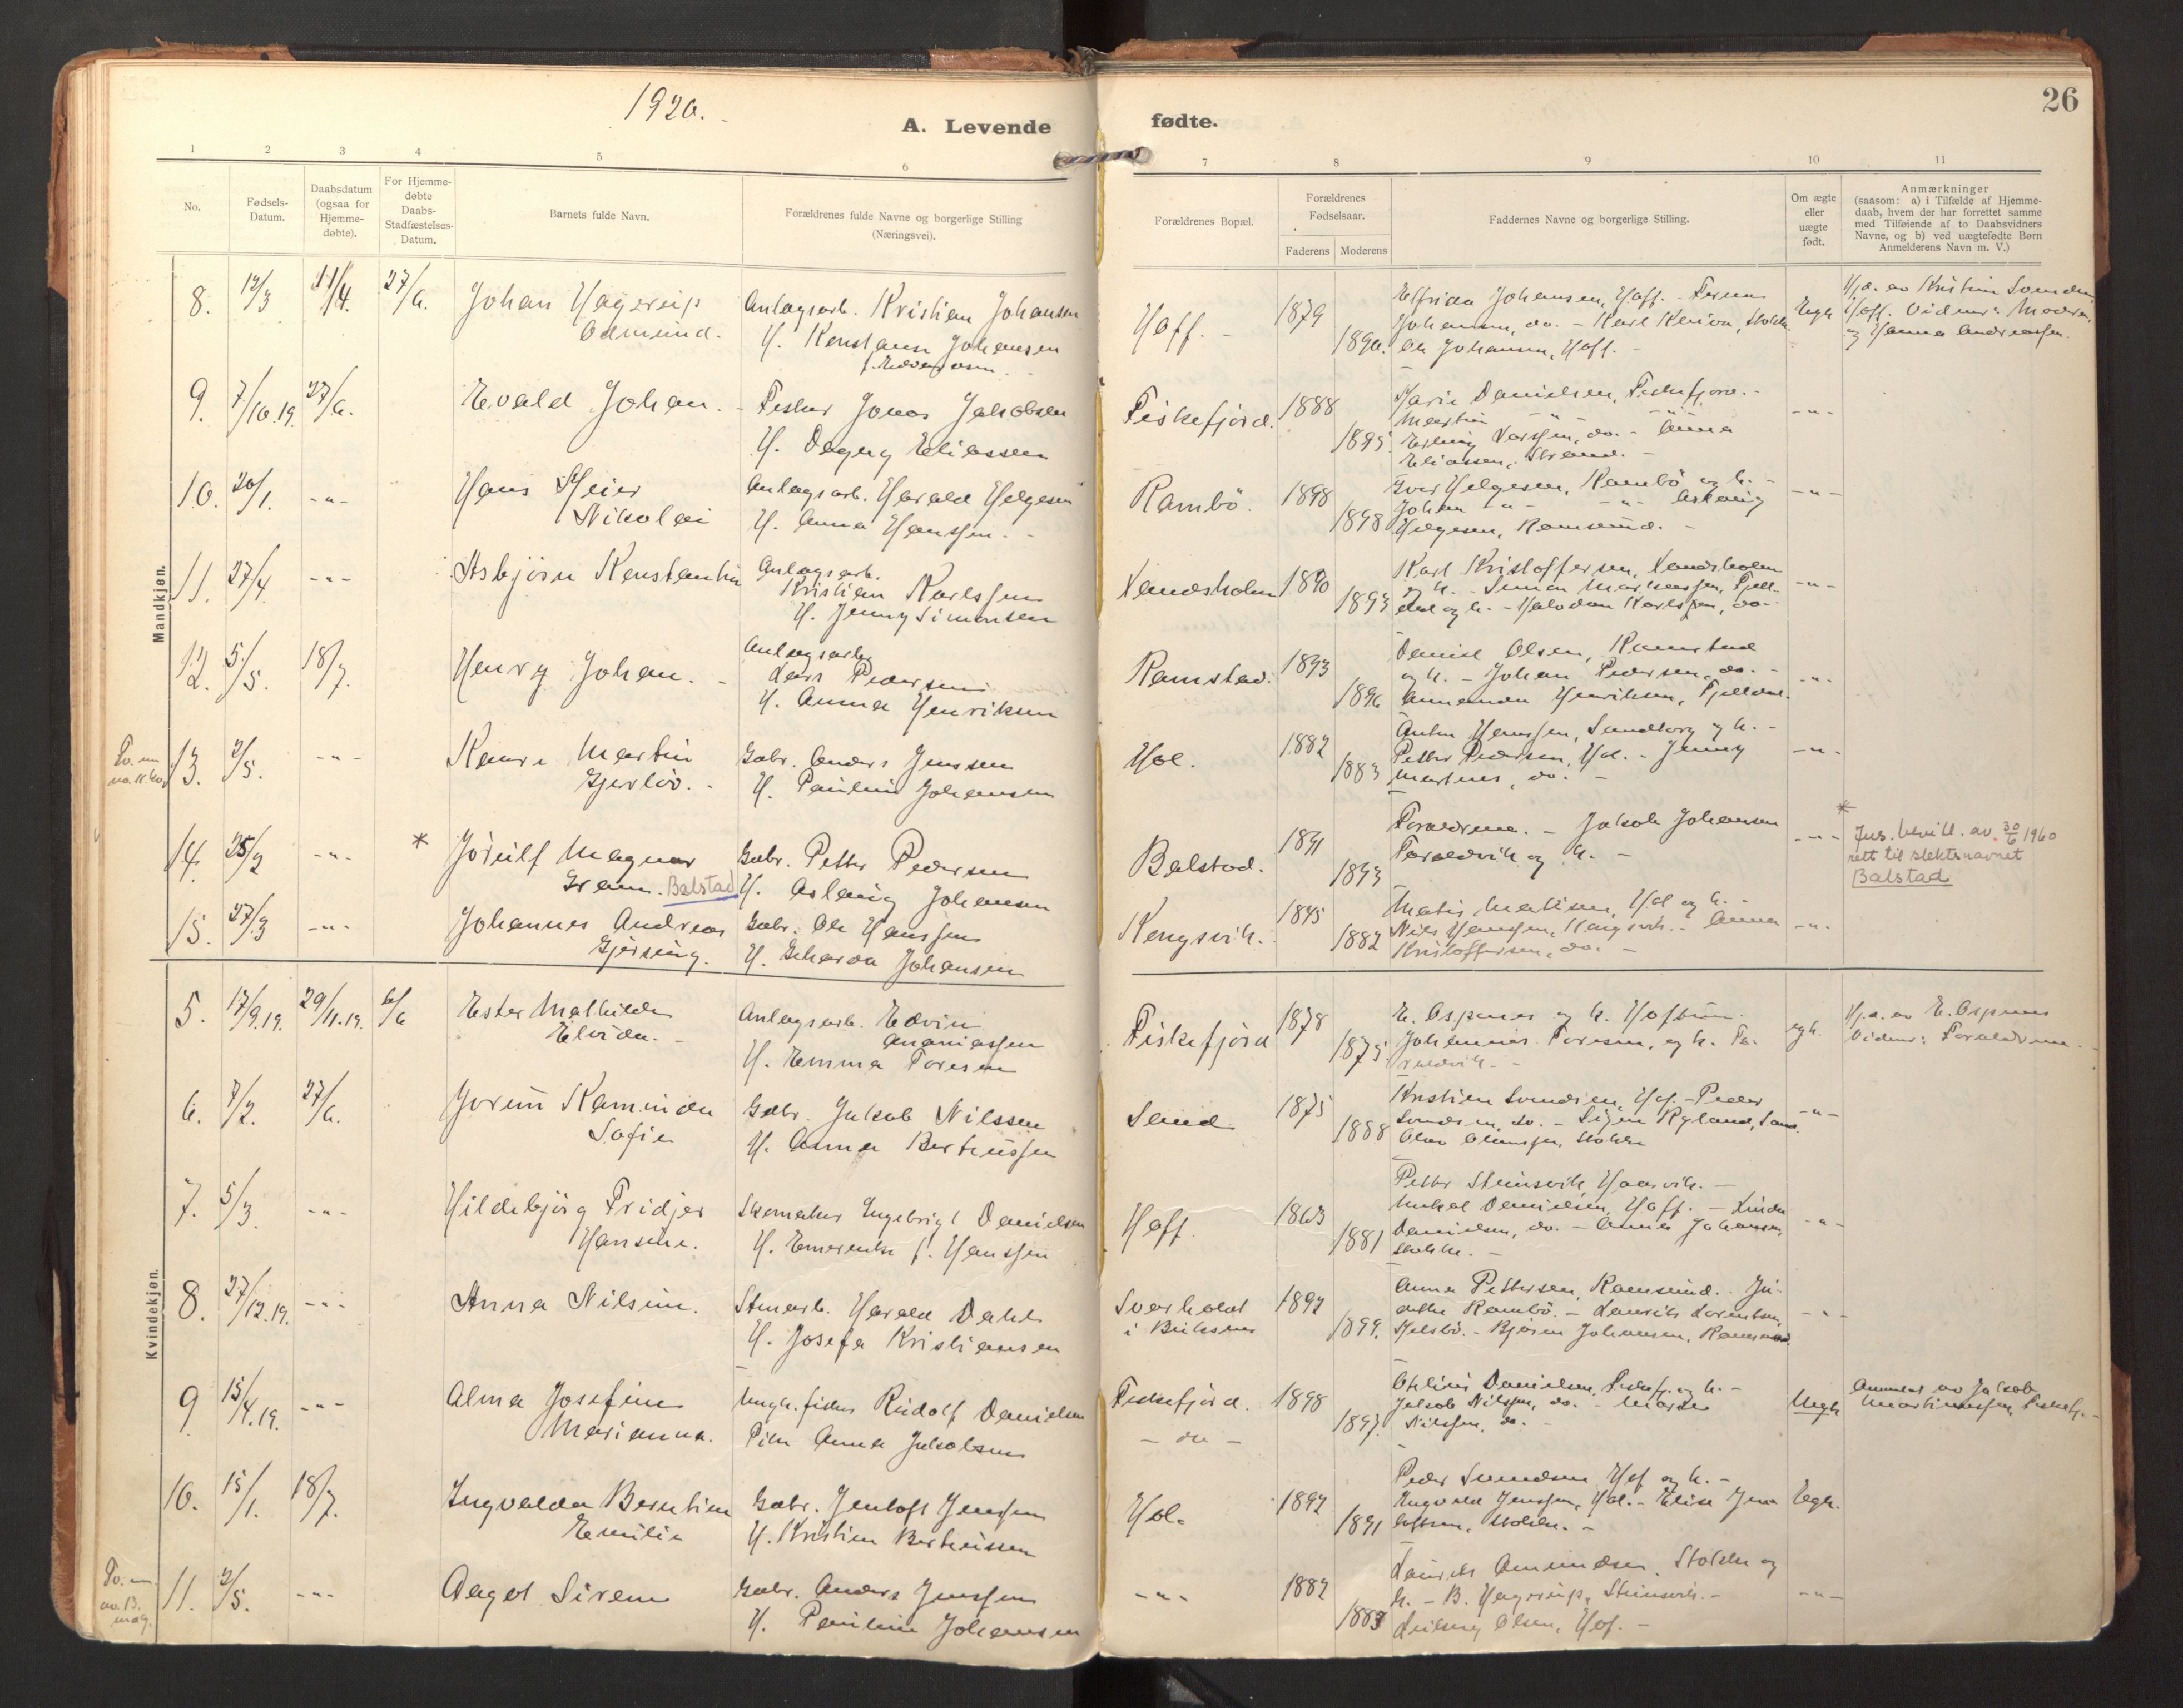 1920.
A. Levende
fødte.
26
1 2 3 4 5 6 7 8 9 10 11
No.
Fødsels-
Datum.
Daabsdatum
(ogsaa for
Hjemme-
døbte).
For Hjemme-
døbte
Daabs-
Stadfæstelses-
Datum.
Barnets fulde Navn.
Forældrenes fulde Navne og borgerlige Stilling
(Næringsvei).
Forældrenes Bopæl.
Forældrenes
Fødselsaar.
Faderens Moderens
Faddernes Navne og borgerlige Stilling.
Om ægte
eller
uægte
født.
Anmærkninger
(saasom: a) i Tilfælde af Hjemme-
daab, hvem der har forrettet samme
med Tilføiende af to Daabsvidners
Navne, og b) ved uægtefødte Børn
Anmelderens Navn m. V.)
Mandkjøn.
8. 12/3 11/4. 27/6. Johan Hagerup Anlagsarb. Kristian Johansen
Odmund. H. Konstanse Johansen
Hoff. 1879 1890.
Elfrida Johansen, Hoff.
Johansen, do. - Karl
Ole Johansen, Hoff. -
Egte
Hj.d. av Kristine
Hoff. Vidner: Moderen
og Hanna Andreassen.
9. 7/10.19. 27/6. Evald Johan. - Fisker Jonas Jakobsen
H. Dagny Eliassen
Fiskefjord. 1888 1895.
Marie Danielsen, Fiskefjord. -
Martin -"- -"-
Erling Larssen, do. - Anna
Eliassen, Strand. -
-"-
10. 20/1. -"- Hans Meier Anlagsarb. Harald Helgesen
Nikolai H. Anna Hanssen. -
Rambö. 1898 1898
Iver Helgesen, Rambö og h. -
Johan -"- -"- Aslaug
Helgesen, Ramsund. -
-"-
11. 27/4. -"- Asbjörn Konstantin Anlagsarb.
Kristian Karlssen
H. Jenny Simonsen
Sandsholm 1890 1893
Karl Kristoffersen, Sandsholm
og h. - Simon Martinussen, Fjell-
dal og h. - Halvdan Karlssen, do. -
-"-
12. 5/5. 18/7. Henry Johan. - Anlagsarb.
Lars Pedersen
H. Anna Henriksen
Ramstad. 1893 1896
Daniel Olsen, Ramstad
og h. - Johan Pedersen, do. -
Amanda Henriksen, Fjelldal.
-"-
Tv. m.
no. 11 kv.
13. 2/5. -"- Kaare Martin Gbr. Anders Jenssen
Gjerlöv. - H. Pauline Johansen
Hol. 1882 1883
Anton Hanssen, Sandtorg og h. -
Petter Pedersen, Hol. - Jenny
Martnes, do. -
-"-
14. 25/2 -"- * Jörulf Magnar Gbr. Petter Pedersen
Gram. Balstad H. Aslaug Johansen
Balstad. 1891 1893
Forældrene. - Jakob Johansen
Taraldvik og h. -
-"-
* Jus. bevill. av 30/6 1960
rett til slektsnavnet
Balstad
15. 27/3 -"- Johannes Andreas Gbr. Ole Hanssen
Gjersing. H. Gcharda Johansen
Kongsvik. 1875 1882
Matis Matisen, Hol og h. -
Nils Hanssen, Kongsvik. - Anna
Kristoffersen, do. -
-"-
Kvindekjøn.
5. 17/9.19. 29/11.19. 6/6 Ester Mathilde Anlagsarb. Edvin
Elvida. - Ananiassen
H. Emma Toresen
Fiskefjord 1878 1875.
E. Aspenes og h. Hoftun.
Johannes Toresen, og h. Ta-
raldvik. -
egte.
Hj.d. av E. Aspenes
Vidner: Forældrene. -
6. 7/2. 27/6. Jorun Kaminda Gbr. Jakob Nilssen
Sofie H. Anna Berteussen
Sand 1875 1888
Kristian Svendsen, Hof. - Peder
Svendsen, do. - Signe Ryland, Sand.
Olav Olaussen, Stokke
-"-
7. 5/3. -"- Hildebjörg Fridjer Skomaker Engebrigt Danielsen
Hansine. H. Emerentse f. Hanssen
Hoff. 1863 1881
Petter Steinsvik, Haarvik. -
Mikal Danielsen, Hoff. - Linda
Danielsen, do. - Anna Johansen,
Stokke. -
-"-
8. 27/12.19. -"- Anna Nilsine. Stenarb. Harald Dahl
H. Josefa Kristiansen
i 1897 1899.
Anna Pettersen, Ramsund. -
Rambö. - Laurits Lorentsen,
- Bjarne Johansen, Ramsund.
-"-
9 15/4.19. -"- Alma Josefine Ungk. fisker Rudolf Danielsen
Marianna. Pike Anna Jakobsen
Fiskefjord. - do - 1898 1897.
Otelius Danielsen, Fiskefj. og h. -
Jakob Nilssen, do. - Marie
Nilssen, do. -
Uegte
Anmeldt av Jakob
Martinussen, Fiskefj. -
10. 15/1. 18/7. Ingvalda Berntine Gbr. Jentoft Jenssen
Emilie H. Kristine Berteussen
Hol. 1897 1891
Peder Svendsen Hof og h. -
Ingvald Jenssen, Hol. - Elise Jen-
toftsen, Stokke. -
Egte.
Tv. m.
no. 13.
mdg.
11. 2/5. -"- Aagot Sirene Gbr. Anders Jenssen
H. Pauline Johansen
-"- 1882 1883
Laurits Amundsen, Stokke og
h. - B. Hagerup, Steinsvik. -
Solveig Olsen, Hof. -
-"-